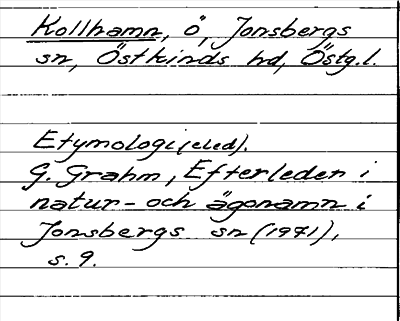 Kollhamn, ö, Jonsbergs
sn, Östkinds hd, Östg.l.
Etymologi (eled).
G. Grahm, Efterleden i
natur- och ägonamn i
Jonsbergs sn (1971),
s. 9.